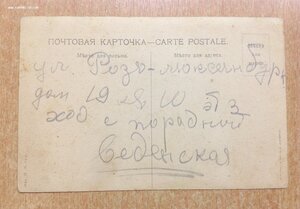 ПОЧТОВАЯ КАРТОЧКА—CARTE POSTALE.
Место для письма. Место для адреса.
ул Розы-люксенбург
дом 19 кв 10 эт 3
ход с парадний
Веденская